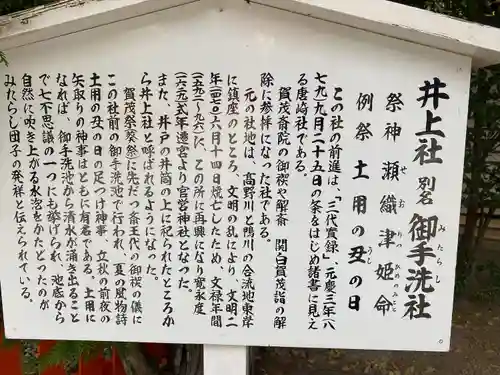 井上社 別名 御手洗社
みたらし
祭神 瀬織津姫命
せおりつひめのみこと
例祭 土用の丑の日
うし
この社の前進は、「三代実録」元慶三年(八
七九)九月二十五日の条をはじめ諸書に見え
る唐崎社である。
賀茂斎院の御禊や解斎 関白賀茂詣の解
除に参拝になった社である。
元の社地は、高野川と鴨川の合流地東岸
に鎮座のところ、文明の乱により、文明二
年(一四七〇)六月十四日焼亡したため、文禄年間
(一五九二~九六)に、この所に再興になり寛永度
(一六二九)式年遷宮より官営神社となった。
また、井戸の井筒の上に祀られたところか
ら井上社と呼ばれるようになった。
賀茂祭(葵祭)に先だつ斎王代の御禊の儀に
この社前の御手洗池で行われ、夏の風物詩
土用の丑の日の足つけ神事、立秋の前夜の
矢取りの神事はともに有名である。土用に
なれば、御手洗池から清水が涌き出ること
で七不思議の一つにも挙げられ、池底から
自然に吹き上がる水泡をかたどったのが
みたらし団子の発祥と伝えられている。